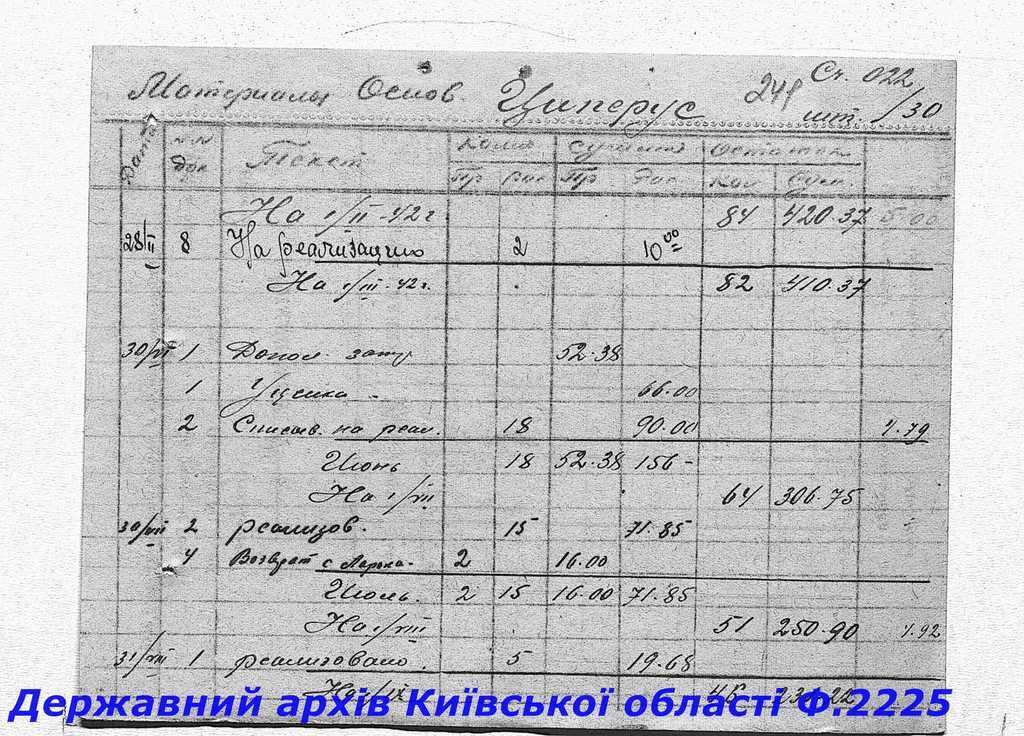 Материалы Основ. Циперус 241 Сч. 022
шт. /30
Дата №№ док Текст Колич Сумма Остаток
Пр рас Пр Рас Кол Сум.
На 1/II-42 г 84 420.37 5.00
28/II 8 На реализацию 2 10 00
На 1/III-42 г. 82 410.37
30/VI 1 Допол. зат 52.38
1 Уценка - 66.00
2 Списыв. на реал. 18 90.00 4.79
Июнь 18 52.38 156-
На 1/VII 64 306.75
30/VII 2 реализов. 15 71.85
4 Возврат с Ларька. 2 16.00
Июль. 2 15 16.00 71.85
На 1/VIII 51 250.90 4.92
31/VIII 1 реализовано. 5 19.68
На 1/IX 46 231.22
Державний архів Київської області Ф.2225